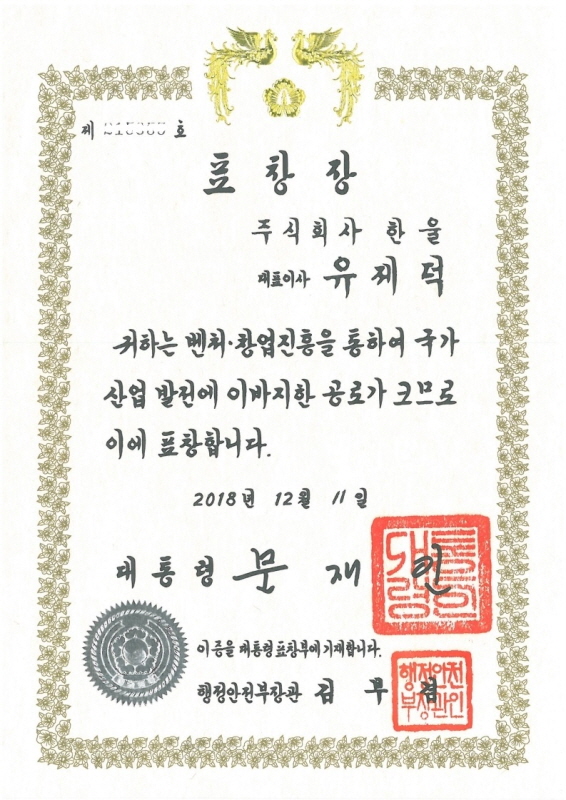 제 215363 호
표 창 장
주식회사 한울
대표이사 유제덕
귀하는 벤처·창업진흥을 통하여 국가
산업 발전에 이바지한 공로가 크므로
이에 표창합니다.
2018년 12월 11일
대통령 문 재 인
대통령인
이 증을 대통령표창부에 기재합니다.
행정안전부장관 김 부 겸
행정안전부장관인